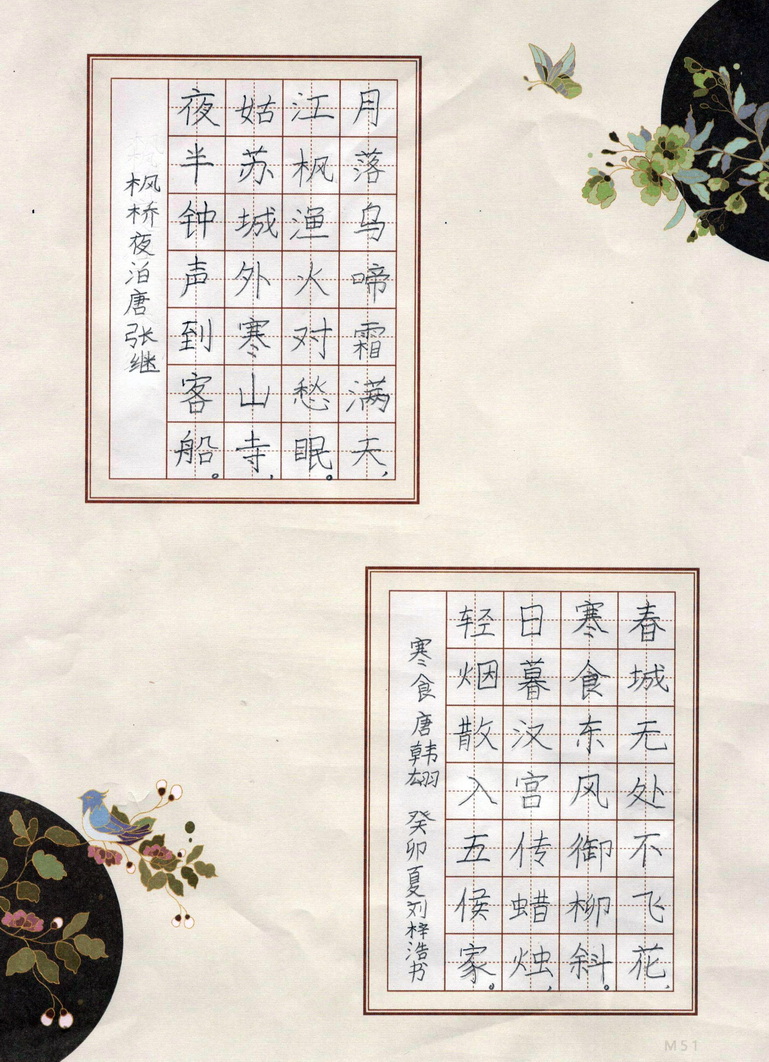 月落乌啼霜满天，
江枫渔火对愁眠。
姑苏城外寒山寺，
夜半钟声到客船。
枫桥夜泊唐张继
春城无处不飞花，
寒食东风御柳斜。
日暮汉宫传蜡烛，
轻烟散入五侯家。
寒食唐韩翃 癸卯夏刘梓浩书
M51